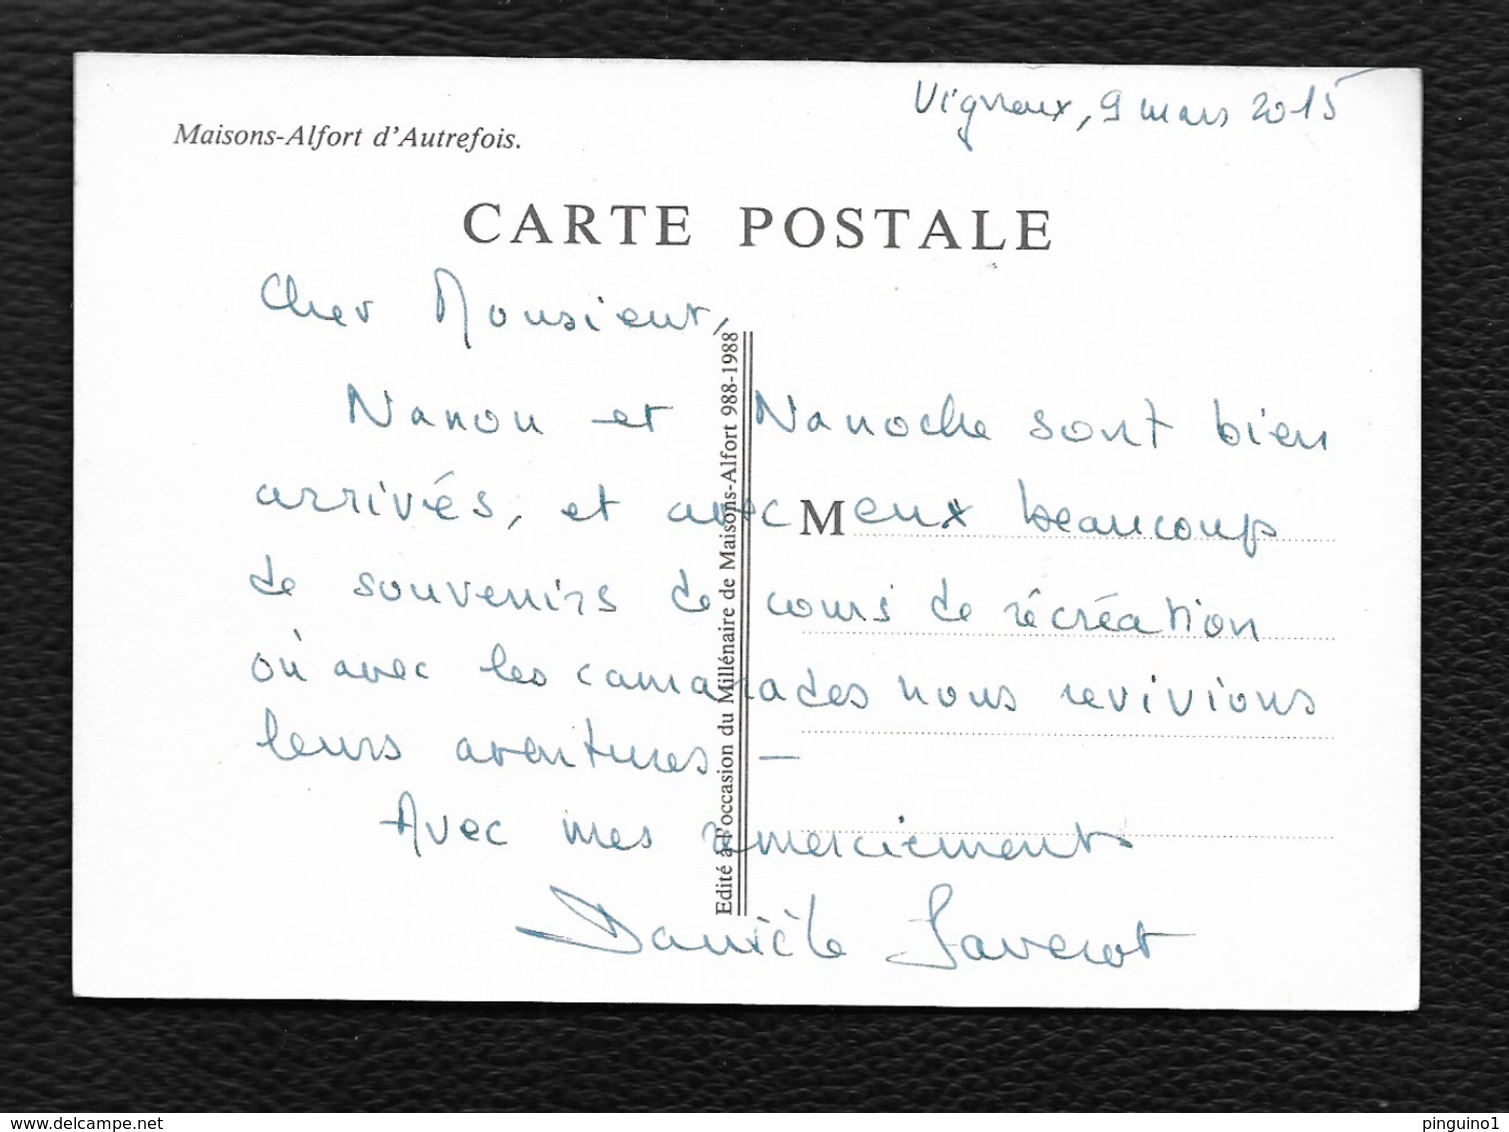 Vigneux, 9 mars 2015
Maisons-Alfort d'Autrefois.
CARTE POSTALE
Cher Monsieur,
Nanou et Nanoche sont bien
arrivés, et avec eux beaucoup
M
de souvenirs de cours de récréation
où avec les camarades nous revivions
leurs aventures —
Avec mes remerciements
Danièle Saverot
Edité à l'occasion du Millénaire de Maisons-Alfort 988-1988
www.delcampe.net
pinguino1